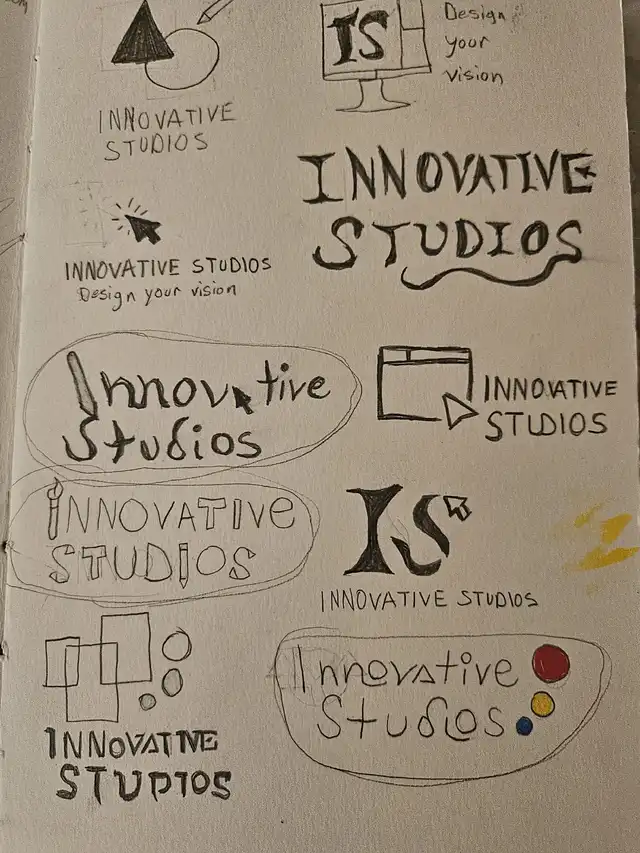 INNOVATIVE
STUDIOS
IS
Design
your
vision
INNOVATIVE STUDIOS
Design your vision
INNOVATIVE
STUDIOS
Innovative
Studios
INNOVATIVE
STUDIOS
INNOVATIVE
STUDIOS
IS
INNOVATIVE STUDIOS
INNOVATIVE
STUDIOS
Innovative
Studios